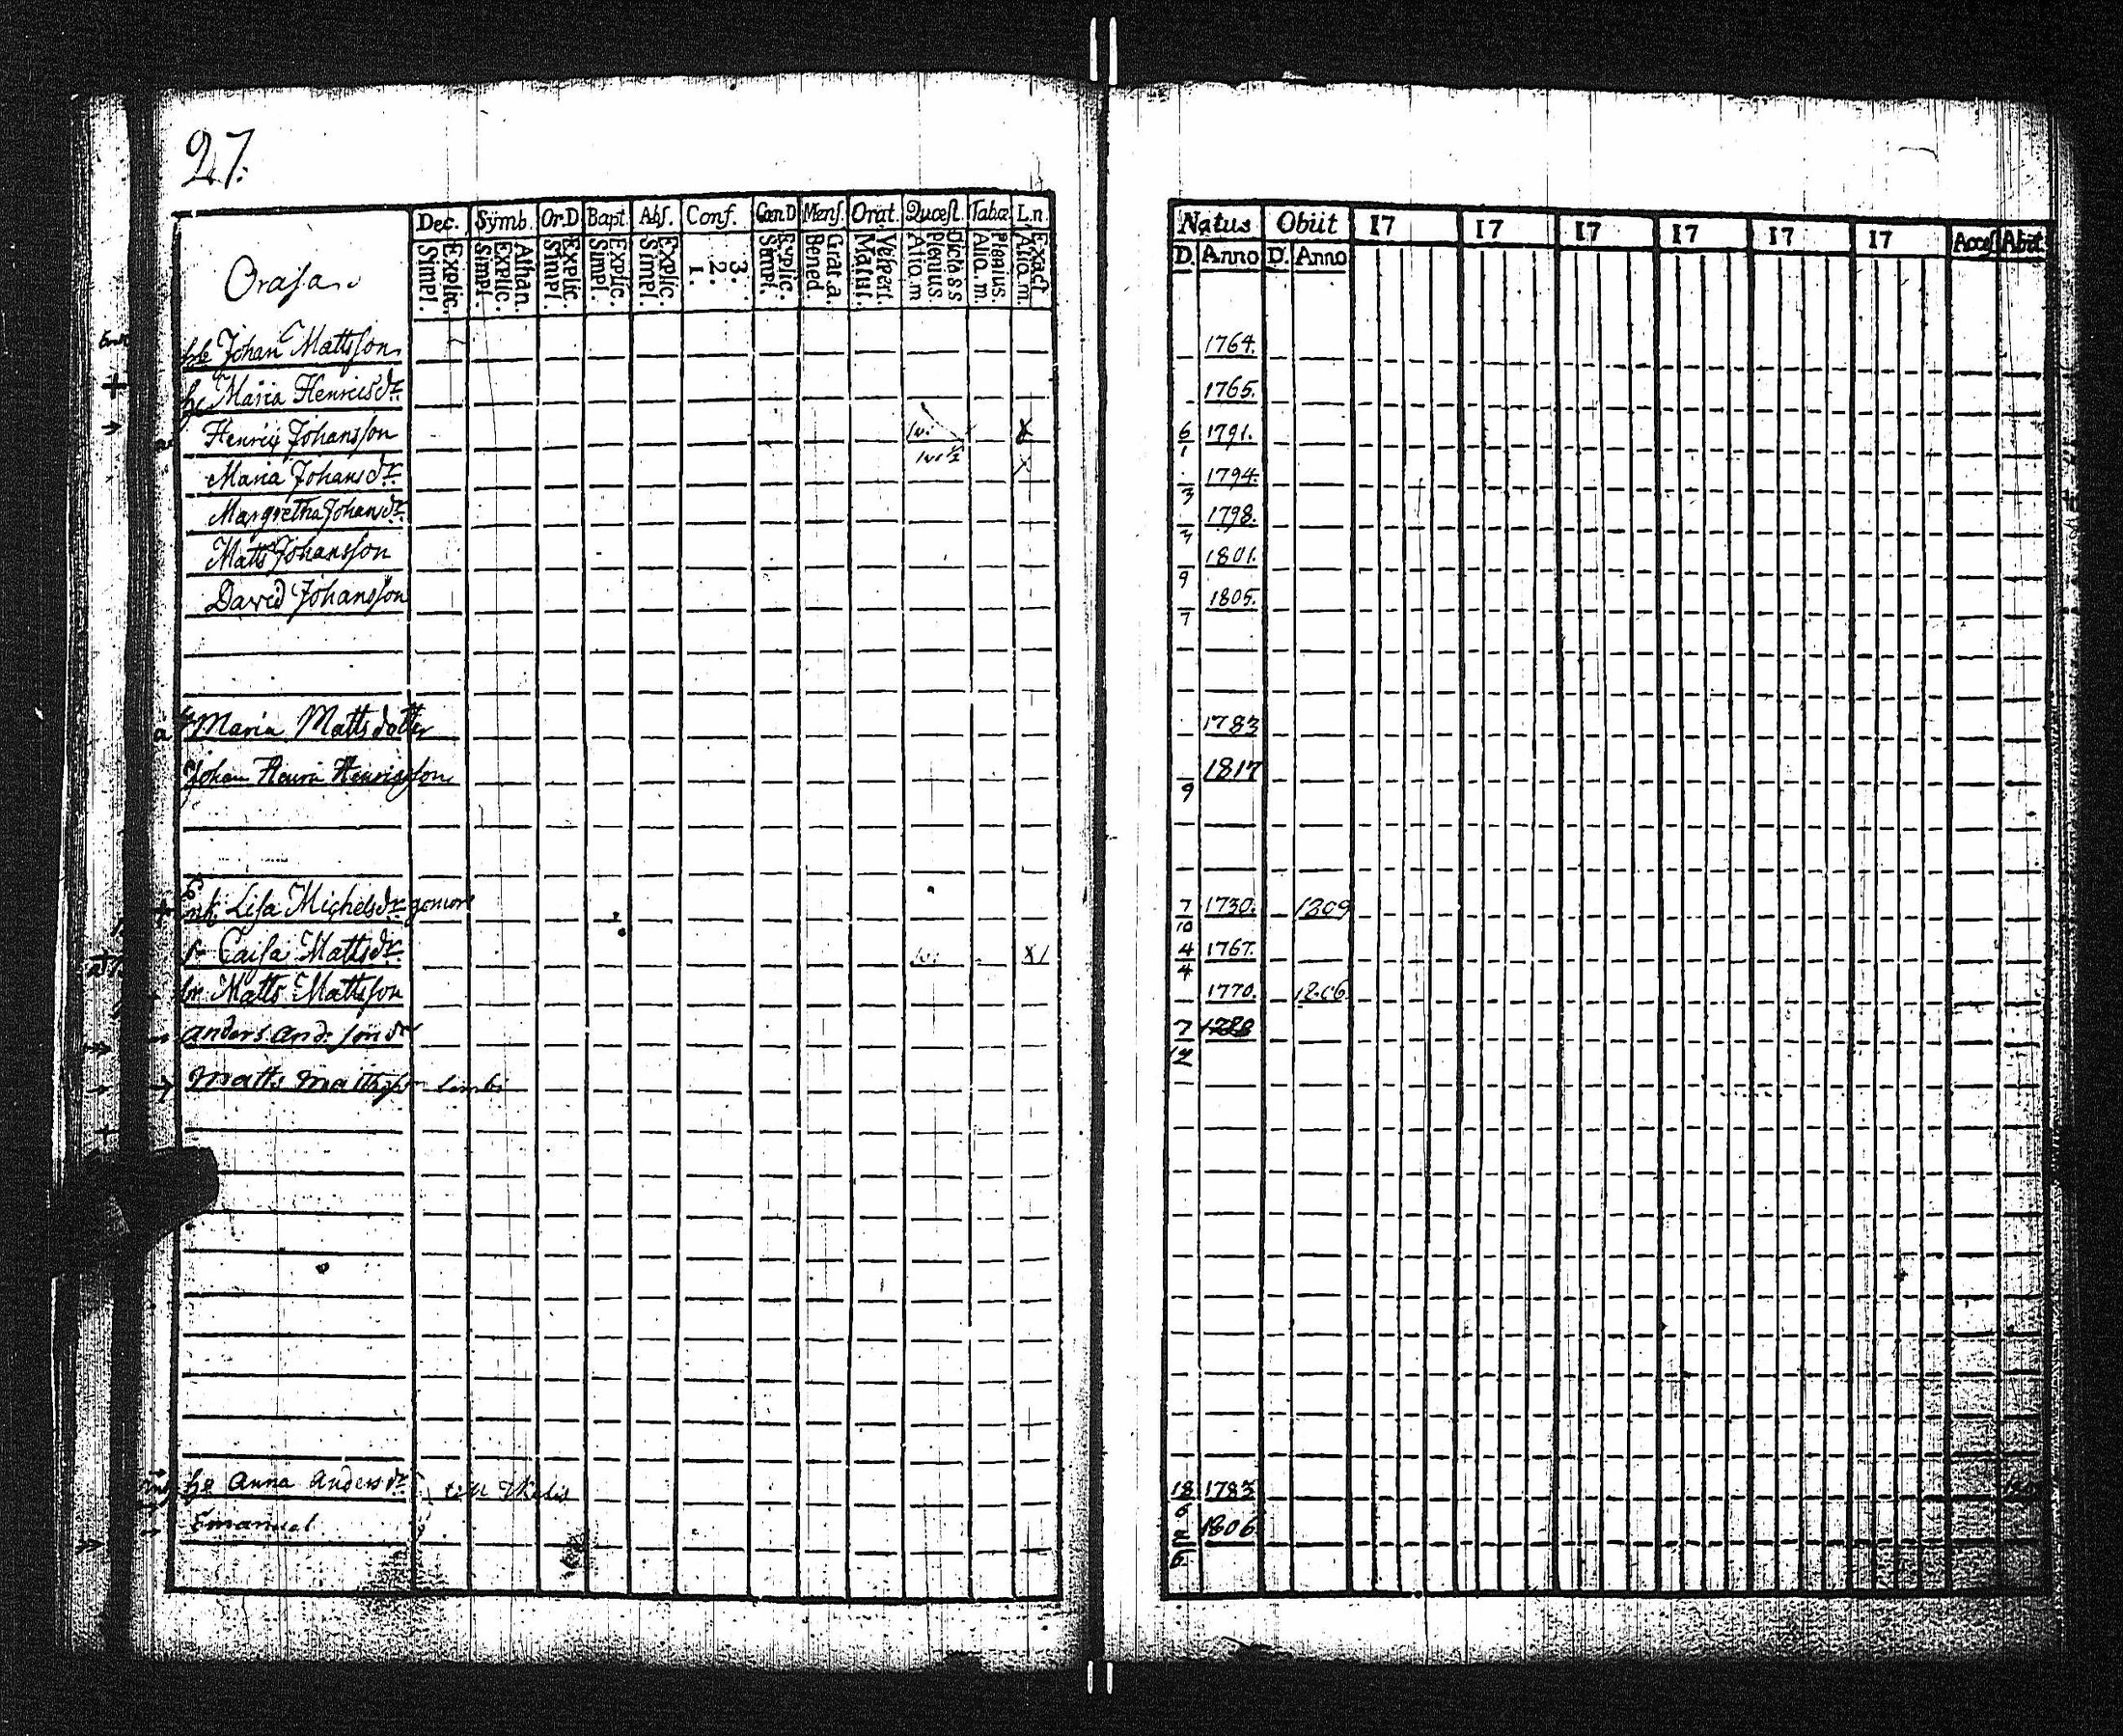 27.
Dec. Symb. Or.D Bapt. Abs. Conf. Cœn D Mens. Orat. Quœst. Tabœ L.n.
Explic. Simpl. Athan. Explic. Simpl. Explic. Simpl. Explic. Simpl. Explic. Simpl. 3. 2. 1. Explic. Simpl. Grat. a. Bened. Vespert. Matut. Dicta SS Plenius Aliq. m Plenius. Aliq. m. Exact Aliq. m.
Natus Obiit 17 17 17 17 17 17 Acces Abiit
D. Anno D. Anno
Orasa
Johan Mattsson 1764.
h. Maria Henricsdr. 1765.
Henric Johansson 6/1 1791.
Maria Johansdr. 3 1794.
Margretha Johansdr. 1798.
Matts Johansson 9 1801.
David Johansson 7 1805.
Maria Mattsdotter 1783
Johan Henric Henricsson 9 1817
Lisa Michelsdr. 7/10 1730. 1809
Caisa Mattsdr. 4/4 1767.
Matts Mattsson 1770. 1806.
anders and: 7/12
Matts Mattsson
h. Anna Andersdr. till 18/6 1783
Emanuel 1806